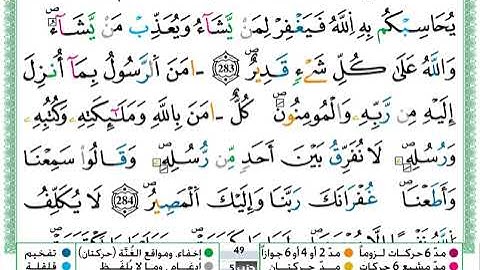 يُحَاسِبْكُم بِهِ اِللَّهُ فَيَغْفِرْ لِمَنْ يَّشَآءُ وَيُعَذِّب مَّنْ يَّشَآءُ
وَاللَّهُ عَلَىٰ كُلِّ شَےْءٖ قَدِيرٌ 283 ءَامَنَ اَلرَّسُولُ بِمَآ أُنزِلَ
إِلَيْهِ مِن رَّبِّهِۦ وَالْمُومِنُونَ كُلٌّ ـ امَنَ بِاللَّهِ وَمَلَٰٓئِكَتِهِۦ وَكُتُبِهِۦ
وَرُسُلِهِۦ لَا نُفَرِّقُ بَيْنَ أَحَدٖ مِّن رُّسُلِهِۦ وَقَالُواْ سَمِعْنَا
وَأَطَعْنَا غُفْرَانَكَ رَبَّنَا وَإِلَيْكَ اَلْمَصِيرُ 284 لَا يُكَلِّفُ
49
مدّ 6 حركات لزوماً مدّ 2 أو 4 أو 6 جوازاً إخفاء، ومواقع الغُنَّة (حركتان) تفخيم
مدّ مشبع 6 حركات مدّ حركتان إدغام، وما لا يُلفَظ قلقلة